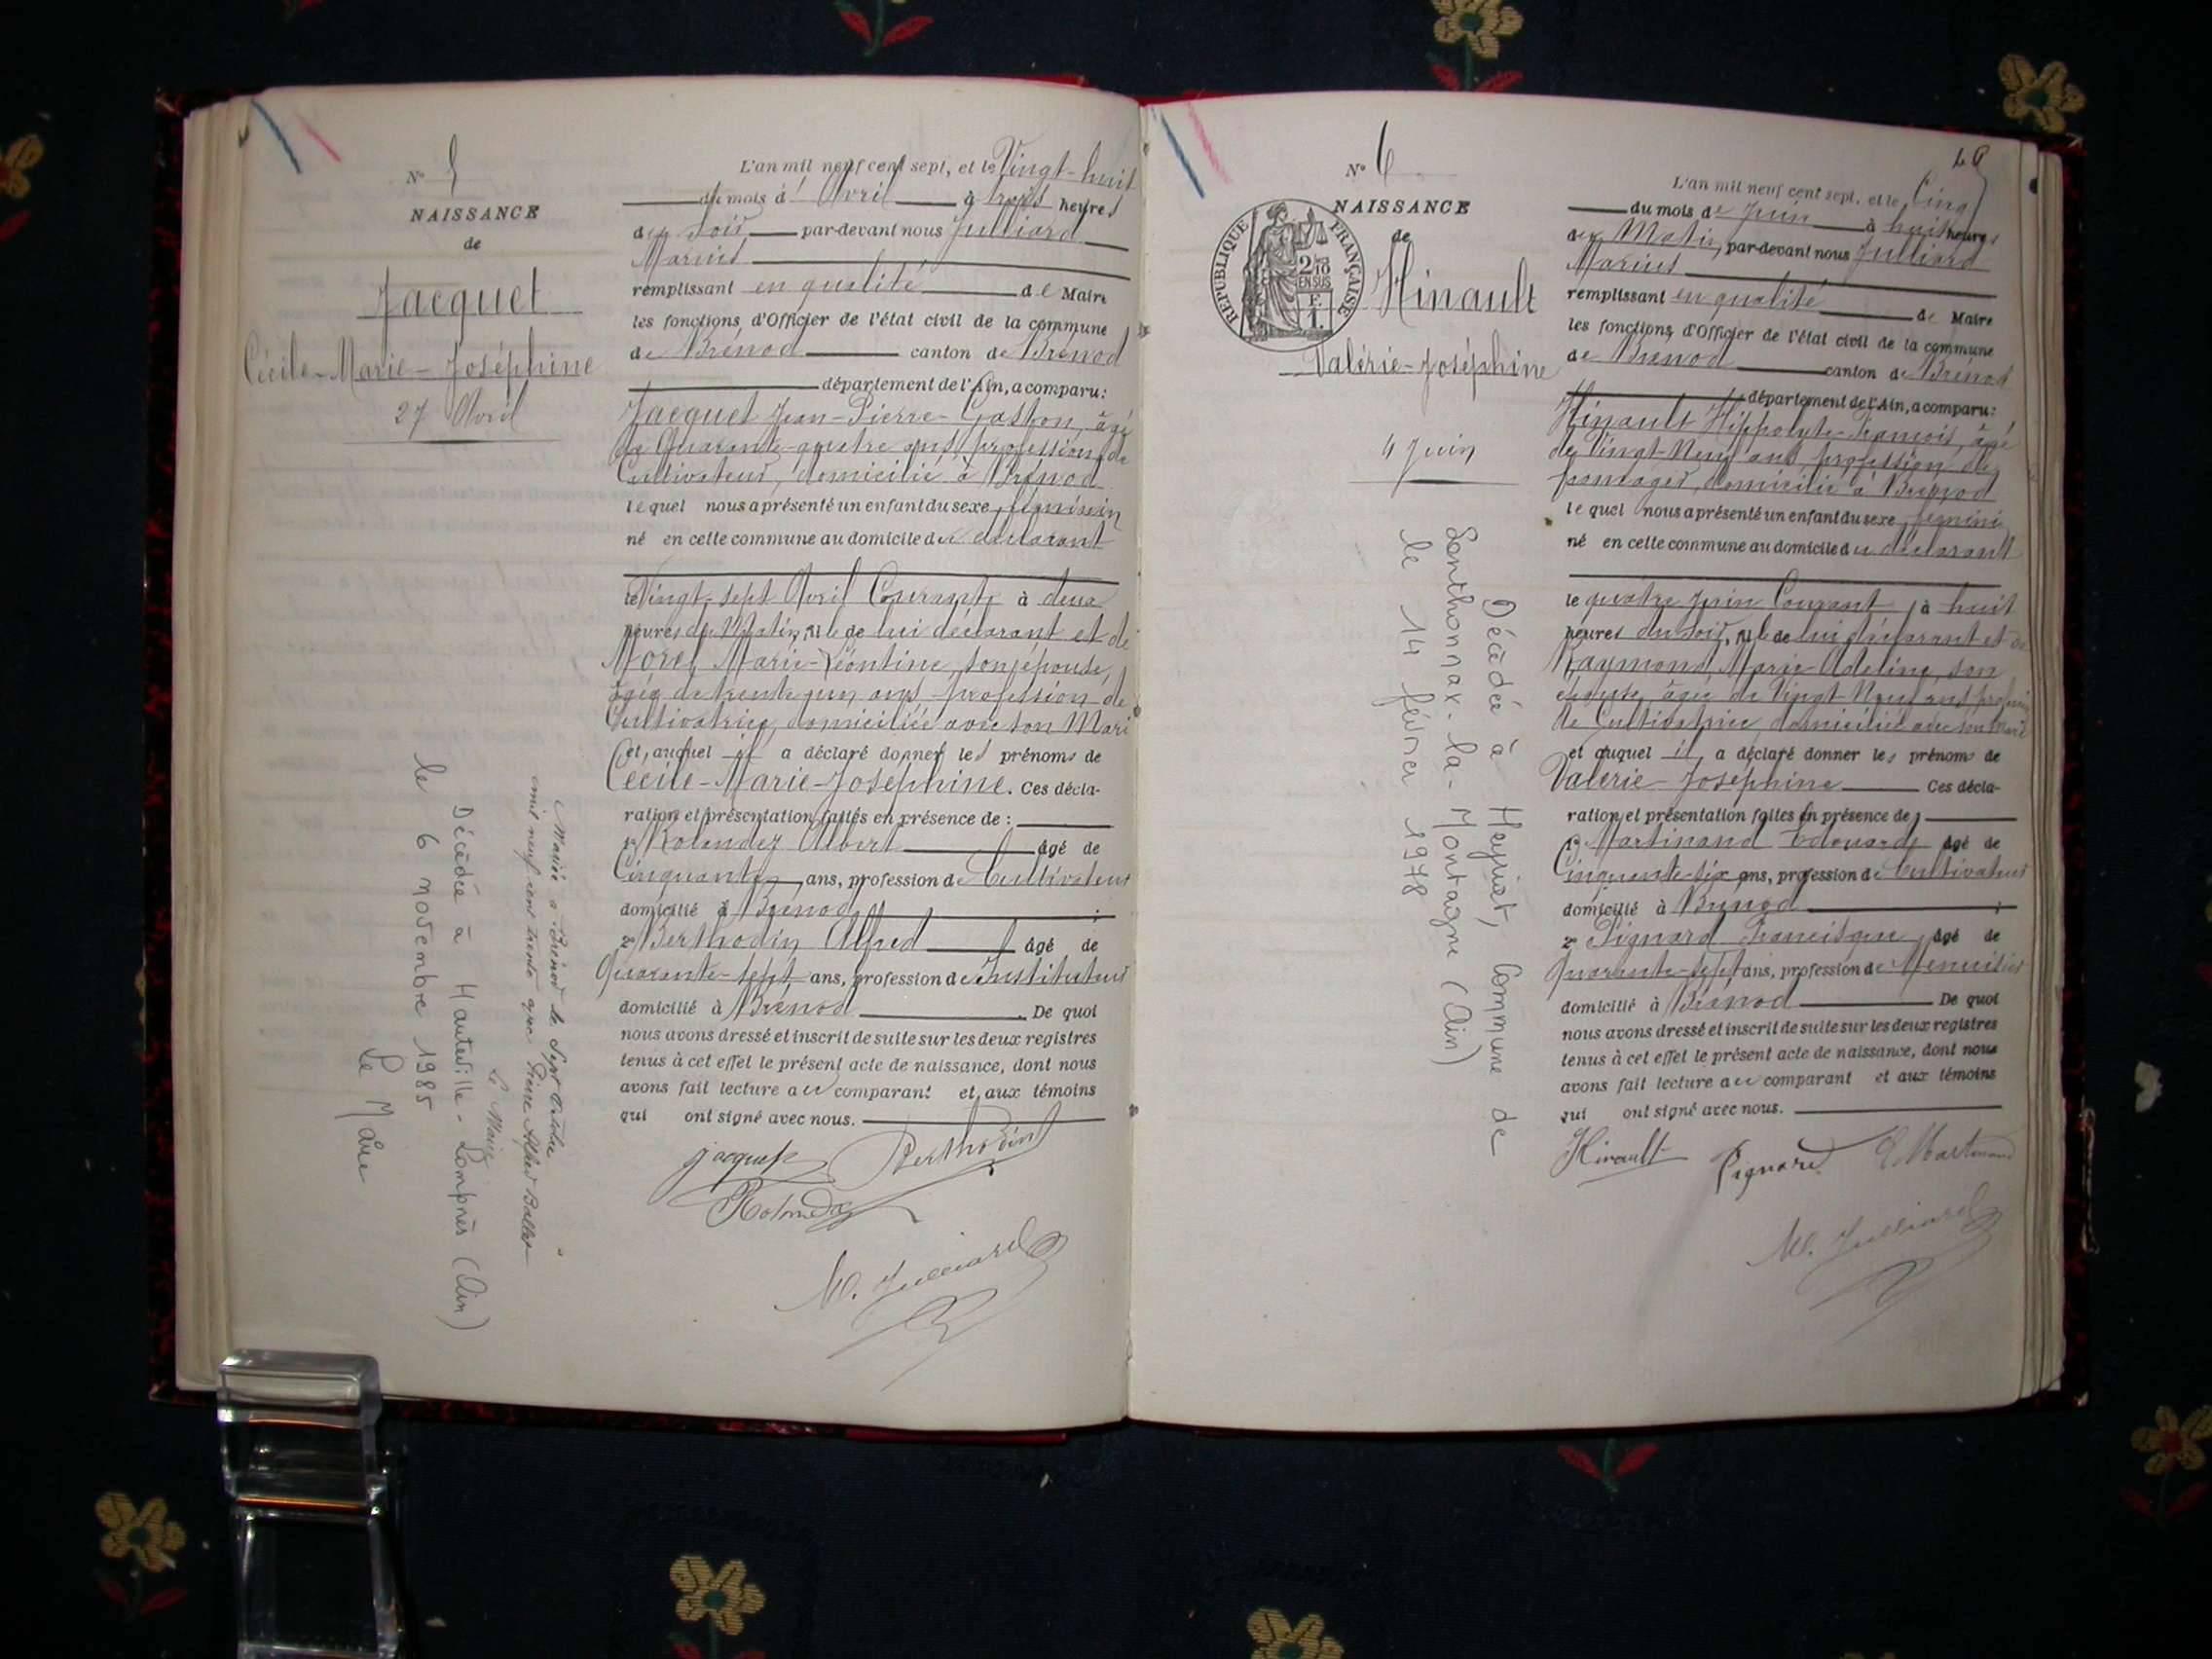 N° 5
NAISSANCE
de
Jacquet
Cécile-Marie-Joséphine
27 Avril
L'an mil neuf cent sept, et le Vingt-huit
du mois d'Avril à trois heures
du soir par-devant nous Julliard
Marius
remplissant en qualité de Maire
les fonctions d'Officier de l'état civil de la commune
de Brénod canton de Brénod
département de l'Ain, a comparu:
Jacquet Jean-Pierre-Gaston, âgé
de Quarante-quatre ans, profession de
Cultivateur, domicilié à Brénod
lequel nous a présenté un enfant du sexe féminin
né en cette commune au domicile du déclarant
le Vingt-sept Avril Courant, à deux
heures du Matin, fille de lui déclarant et de
Morel Marie-Léontine, son épouse,
âgée de trente un ans, profession de
Cultivatrice, domiciliée avec son Mari
et, auquel il a déclaré donner les prénoms de
Cécile-Marie-Joséphine. Ces décla-
ration et présentation faites en présence de :
1° Rolandez Albert âgé de
Cinquante ans, profession de Cultivateur
domicilié à Brénod ;
2° Berthodin Alfred âgé de
Quarante-sept ans, profession de Instituteur
domicilié à Brénod. De quoi
nous avons dressé et inscrit de suite sur les deux registres
tenus à cet effet le présent acte de naissance, dont nous
avons fait lecture au comparant et aux témoins
qui ont signé avec nous.
Jacquet Berthodin
Rolandez
M. Julliard
Mariée à Brénod le Sept Octobre
mil neuf cent trente avec Pierre Alfred Ballet
Le Maire
Décédée à Hauteville-Lompnès (Ain)
le 6 novembre 1985
Le Maire
N° 6
NAISSANCE
de
RÉPUBLIQUE FRANÇAISE
2/10
EN SUS
F.
1.
Hinault
Valérie-Joséphine
4 Juin
Décédée à Heyriat, Commune de
Sonthonnax-la-Montagne (Ain)
le 14 février 1978
L'an mil neuf cent sept, et le Cinq
du mois de Juin à huit heures
du Matin, par-devant nous Julliard
Marius
remplissant en qualité de Maire
les fonctions d'Officier de l'état civil de la commune
de Brénod canton de Brénod
département de l'Ain, a comparu:
Hinault Hippolyte-François, âgé
de Vingt-Neuf ans, profession de
fromager, domicilié à Brénod
lequel nous a présenté un enfant du sexe féminin
né en cette commune au domicile du déclarant
le quatre Juin Courant, à huit
heures du soir, fille de lui déclarant et de
Raymond Marie-Adeline, son
épouse, âgée de Vingt-Neuf ans, profession
de Cultivatrice domiciliée avec son Mari
et auquel il a déclaré donner les prénoms de
Valérie-Joséphine Ces décla-
ration et présentation faites en présence de :
1° Martinand Edouard, âgé de
Cinquante-six ans, profession de Cultivateur
domicilié à Brénod ;
2° Pignard Francisque, âgé de
Quarante-sept ans, profession de Menuisier
domicilié à Brénod De quoi
nous avons dressé et inscrit de suite sur les deux registres
tenus à cet effet le présent acte de naissance, dont nous
avons fait lecture au comparant et aux témoins
qui ont signé avec nous.
Hinault Pignard E Martinand
M. Julliard